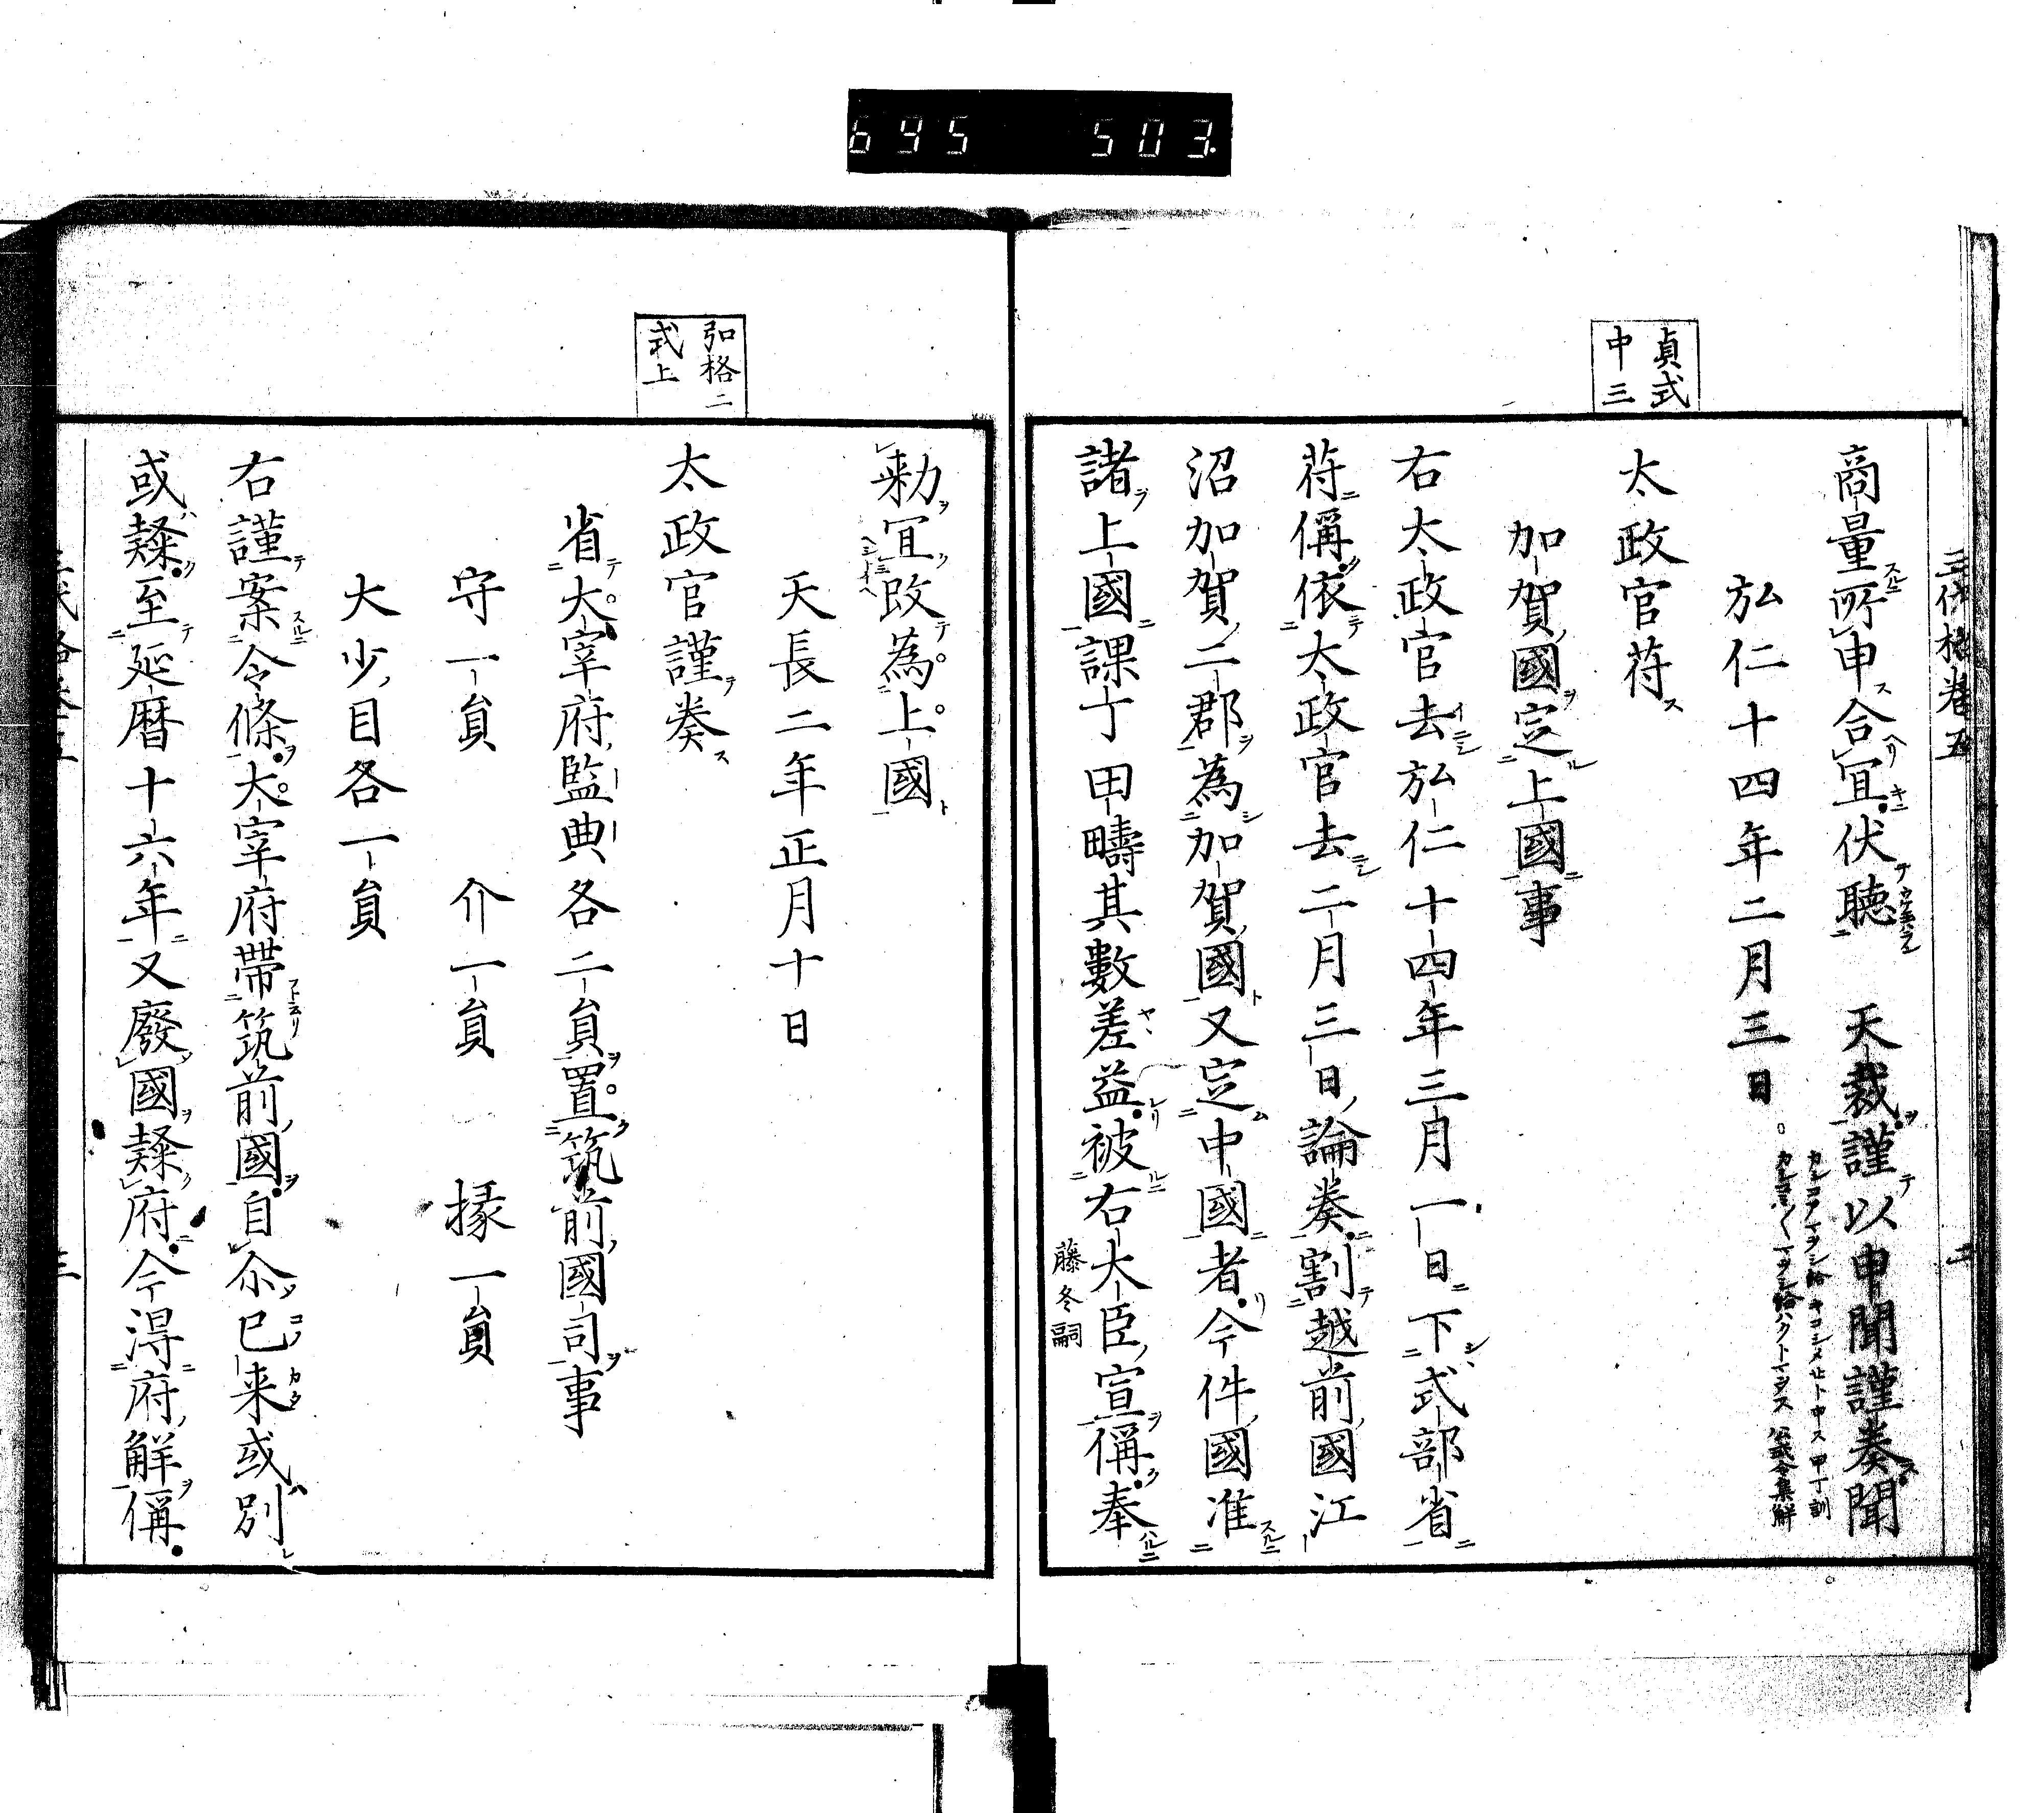 695 503
三代格卷五 二
貞式
中三
商量所申合宜伏聽 天裁謹以申聞謹奏聞
弘仁十四年二月三日
公式令集解
太政官苻
加賀國定上國事
右太政官去弘仁十四年三月一日下式部省
苻偁依太政官去二月三日論奏割越前國江
沼加賀二郡為加賀國又定中國者今件國准
諸上國課丁田疇其數差益被右大臣宣偁奉
藤冬嗣
勑宜改為上國
天長二年正月十日
弘格二
式上
太政官謹奏
省大宰府監典各二員置筑前國司事
守一員 介一員 掾一員
大少目各一員
右謹案令條大宰府帶筑前國自尒已来或別
或隸至延曆十六年又廢國隸府今得府解偁
三代格卷五 三